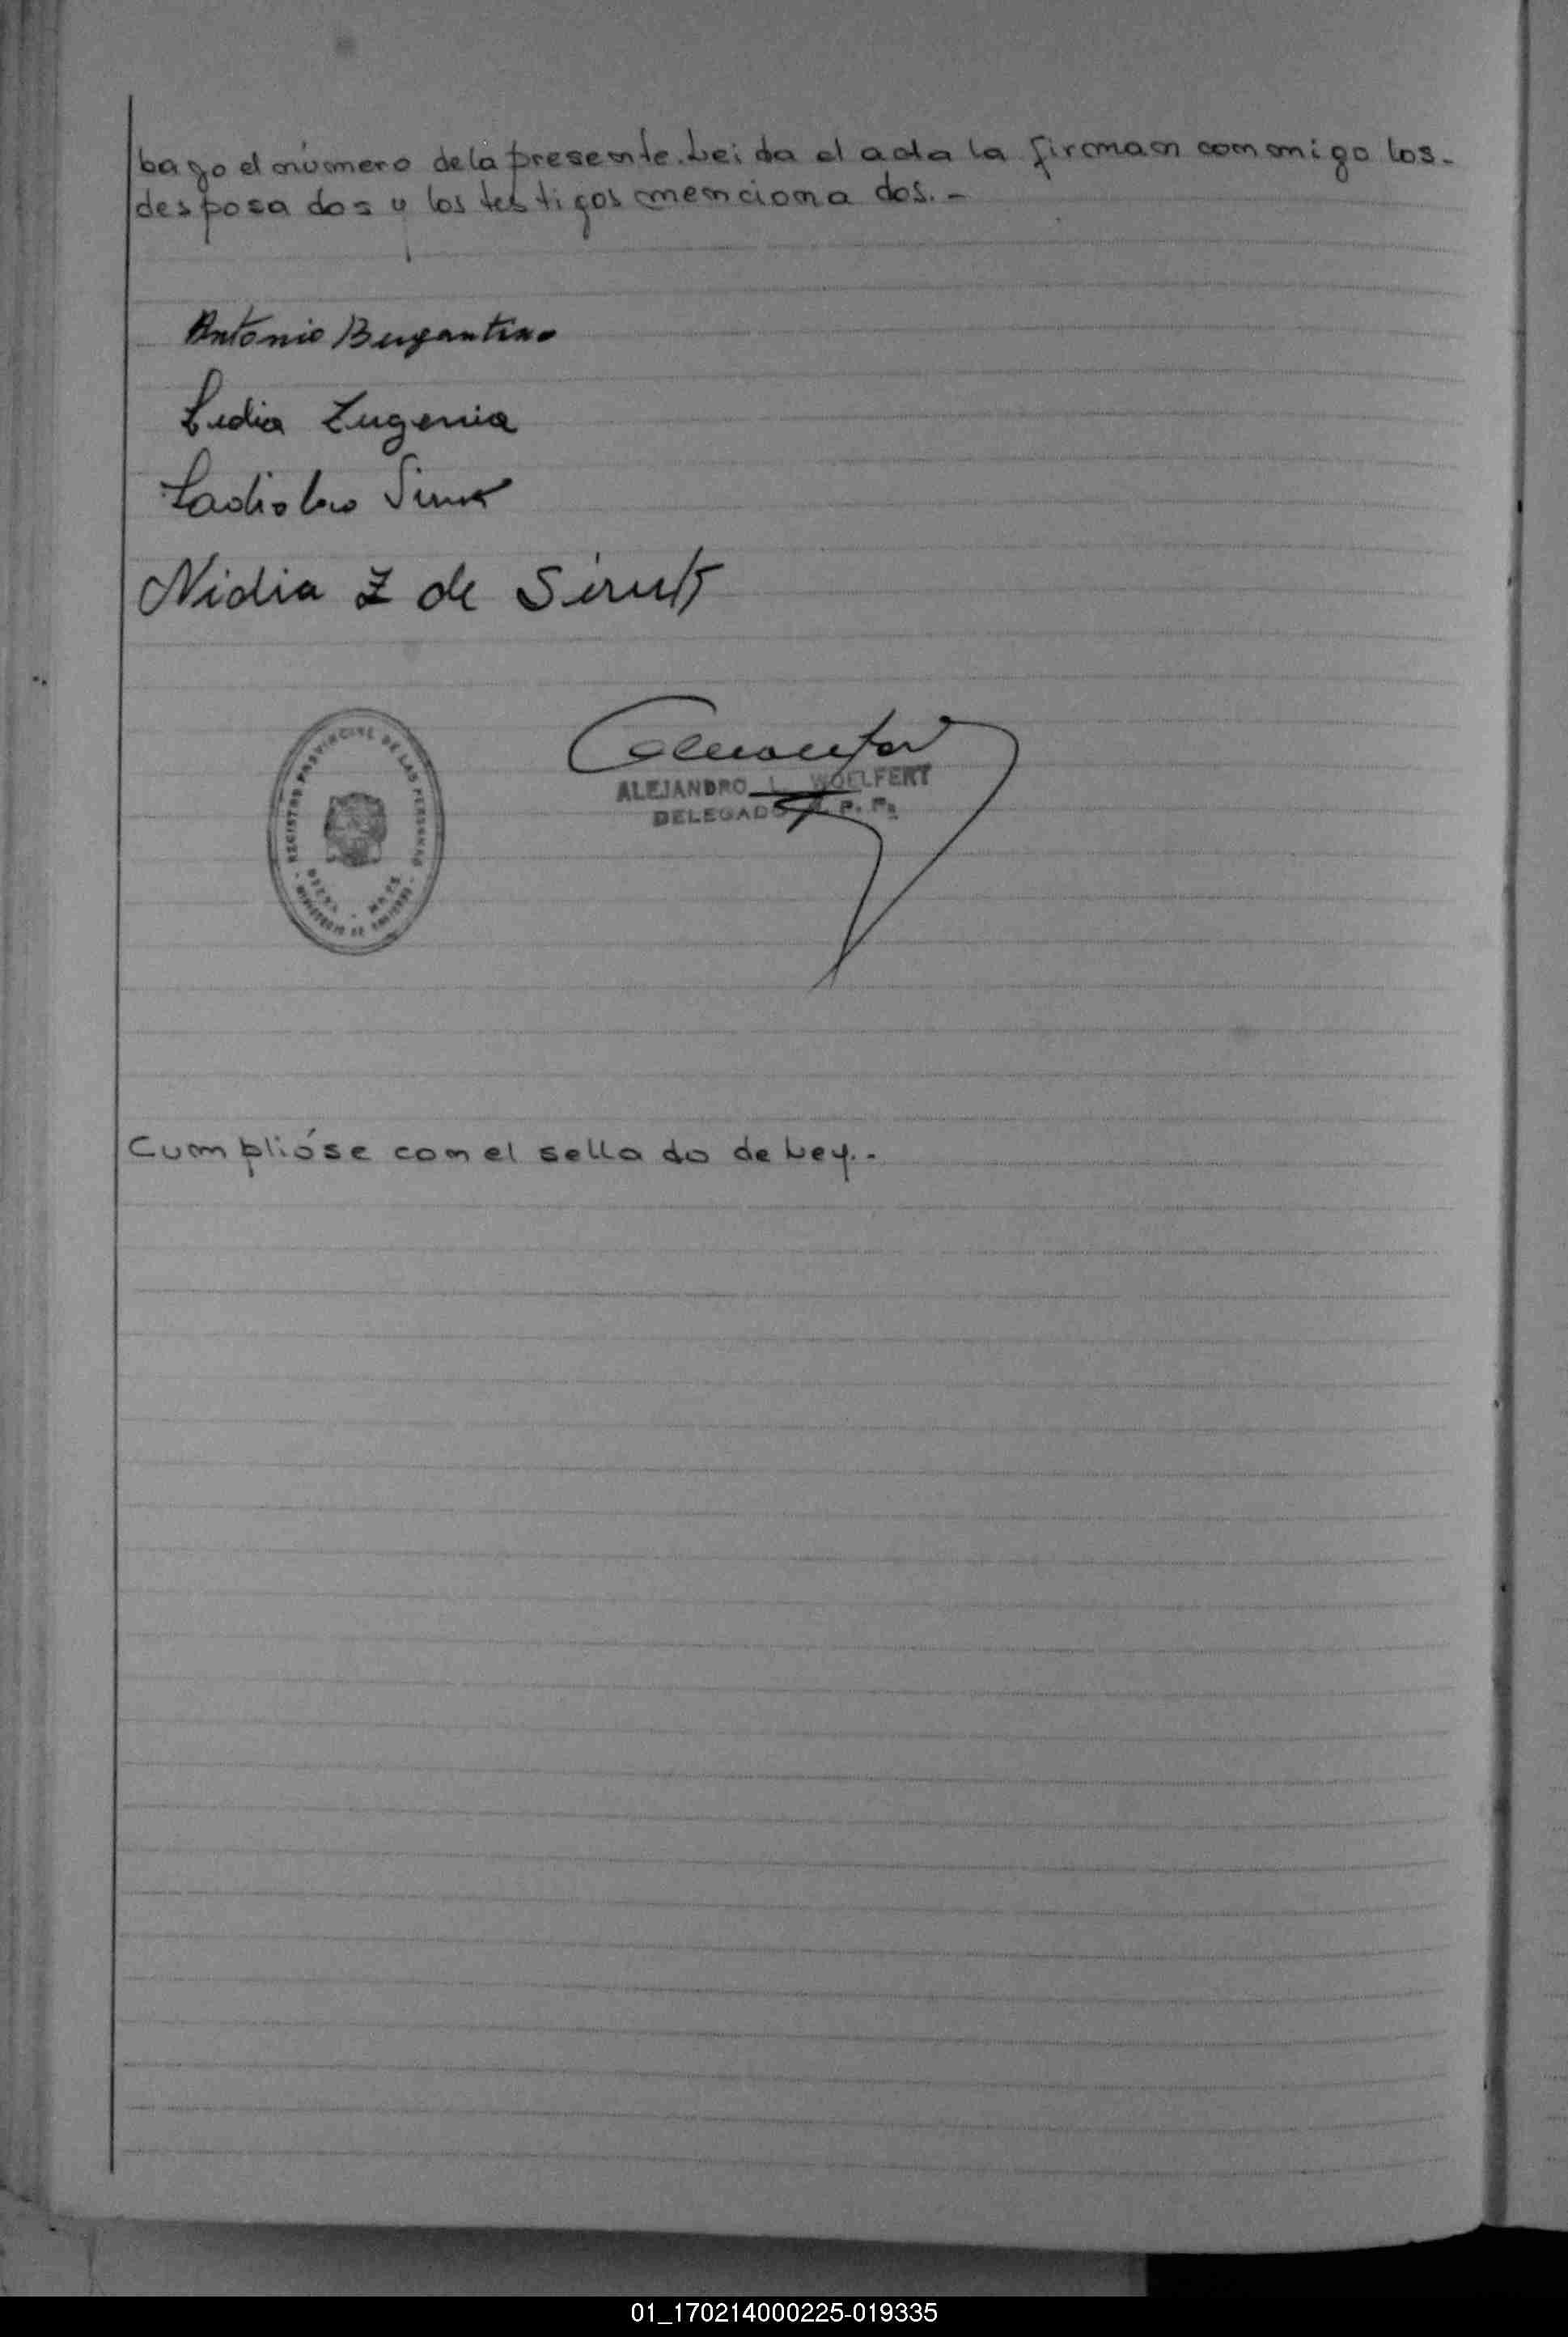 bajo el número de la presente. Leida el acta la firman conmigo los-
desposados y los testigos mencionados.-
Antonio Bergantino
Lidia Eugenia
Ladislao Siruk
Nidia Z de Siruk
REGISTRO PROVINCIAL DE LAS PERSONAS
MINISTERIO DE
ALEJANDRO L. WOELFERT
DELEGADO R. P. P.
Cumplióse con el sellado de Ley.-
01_170214000225-019335